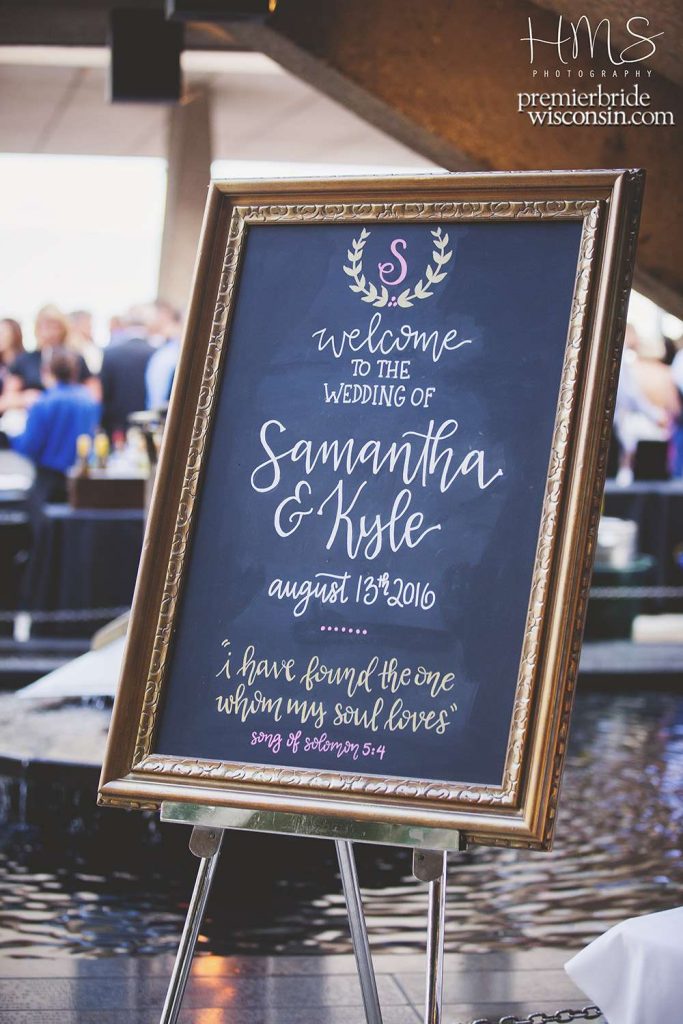 HMS
PHOTOGRAPHY
premierbride
wisconsin.com
S
welcome
TO THE
WEDDING OF
Samantha
& Kyle
august 13th 2016
"i have found the one
whom my soul loves"
song of solomon 5:4